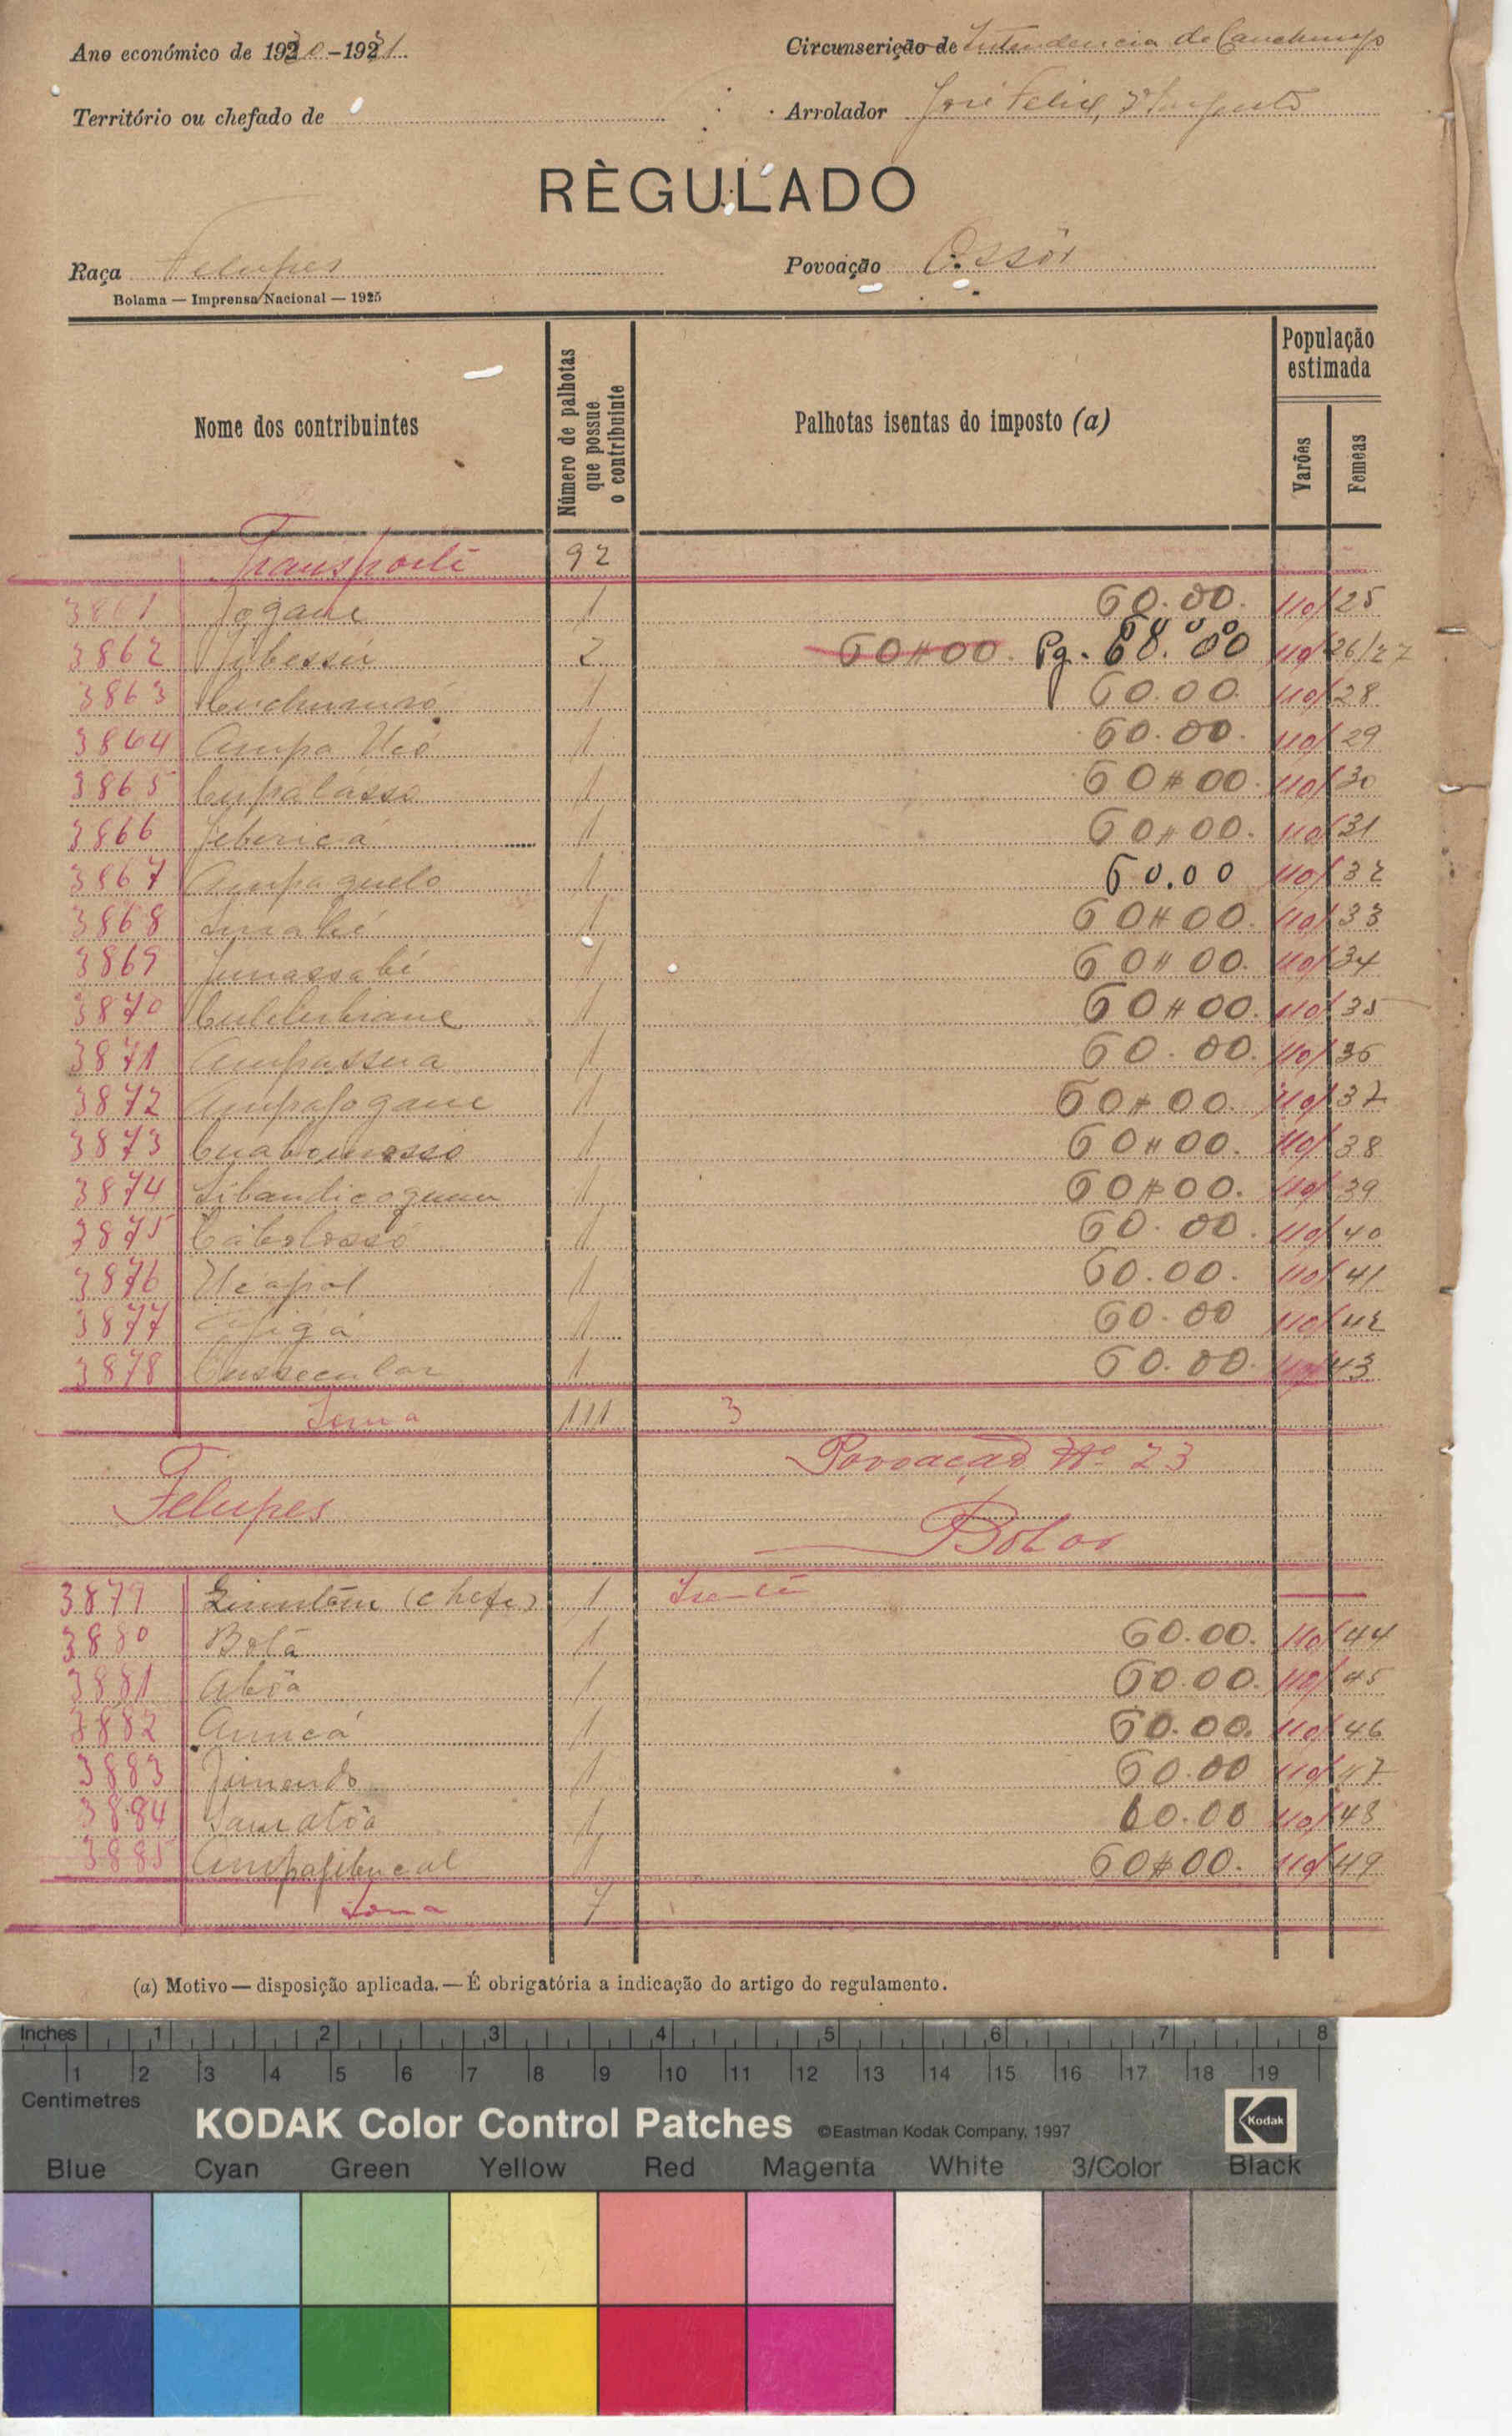 Ano económico de 1930-1931
Circunscrição de Intendencia de Canchungo
Território ou chefado de
Arrolador José Felix, 2º Sargento
RÈGULADO
Raça Felupes
Povoação Ossôr
Bolama — Imprensa Nacional — 1925
Nome dos contribuintes
Número de palhotas que possue o contribuinte
Palhotas isentas do imposto (a)
População estimada
Varões
Femeas
Transporte 92
3861 Jogane 1 60.00. 110/25
3862 2 60$00. Pg. 60.00 110/26/27
3863 1 60.00. 110/28
3864 Ampa Ucó 1 60.00. 110/29
3865 Cupalásso 1 60$00. 110/30
3866 Jebericá 1 60$00. 110/31
3867 Ampaguelo 1 60.00 110/32
3868 1 60$00. 110/33
3869 Junassabi 1 60$00. 110/34
3870 1 60$00. 110/35
3871 Ampassua 1 60.00. 110/36
3872 Ampafogane 1 60$00. 110/37
3873 1 60$00. 110/38
3874 1 60$00. 110/39
3875 Cabolosso 1 60.00. 110/40
3876 Ucapol 1 60.00. 110/41
3877 1 60.00 110/42
3878 Cussecular 1 60.00. 110/43
Soma 111 3
Povoação Nº 23
Felupes
Bolor
3879 (chefe) 1 Isento
3880 Bolá 1 60.00. 110/44
3881 Abóa 1 60.00. 110/45
3882 1 60.00. 110/46
3883 1 60.00 110/47
3884 1 60.00 110/48
3885 1 60$00. 110/49
Soma 7
(a) Motivo — disposição aplicada. — É obrigatória a indicação do artigo do regulamento.
Inches 1 2 3 4 5 6 7 8
1 2 3 4 5 6 7 8 9 10 11 12 13 14 15 16 17 18 19
Centimetres
KODAK Color Control Patches ©Eastman Kodak Company, 1997 Kodak
Blue Cyan Green Yellow Red Magenta White 3/Color Black